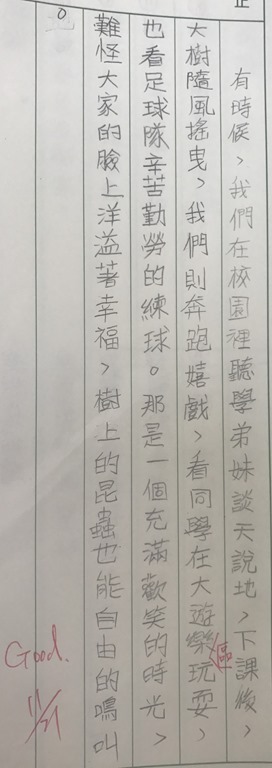 有時候，我們在校園裡聽學弟妹談天說地，下課後，
大樹隨風搖曳，我們則奔跑嬉戲，看同學在大遊樂區玩耍，
也看足球隊辛苦勤勞的練球。那是一個充滿歡笑的時光，
難怪大家的臉上洋溢著幸福，樹上的昆蟲也能自由的鳴叫
。
Good.
11/21